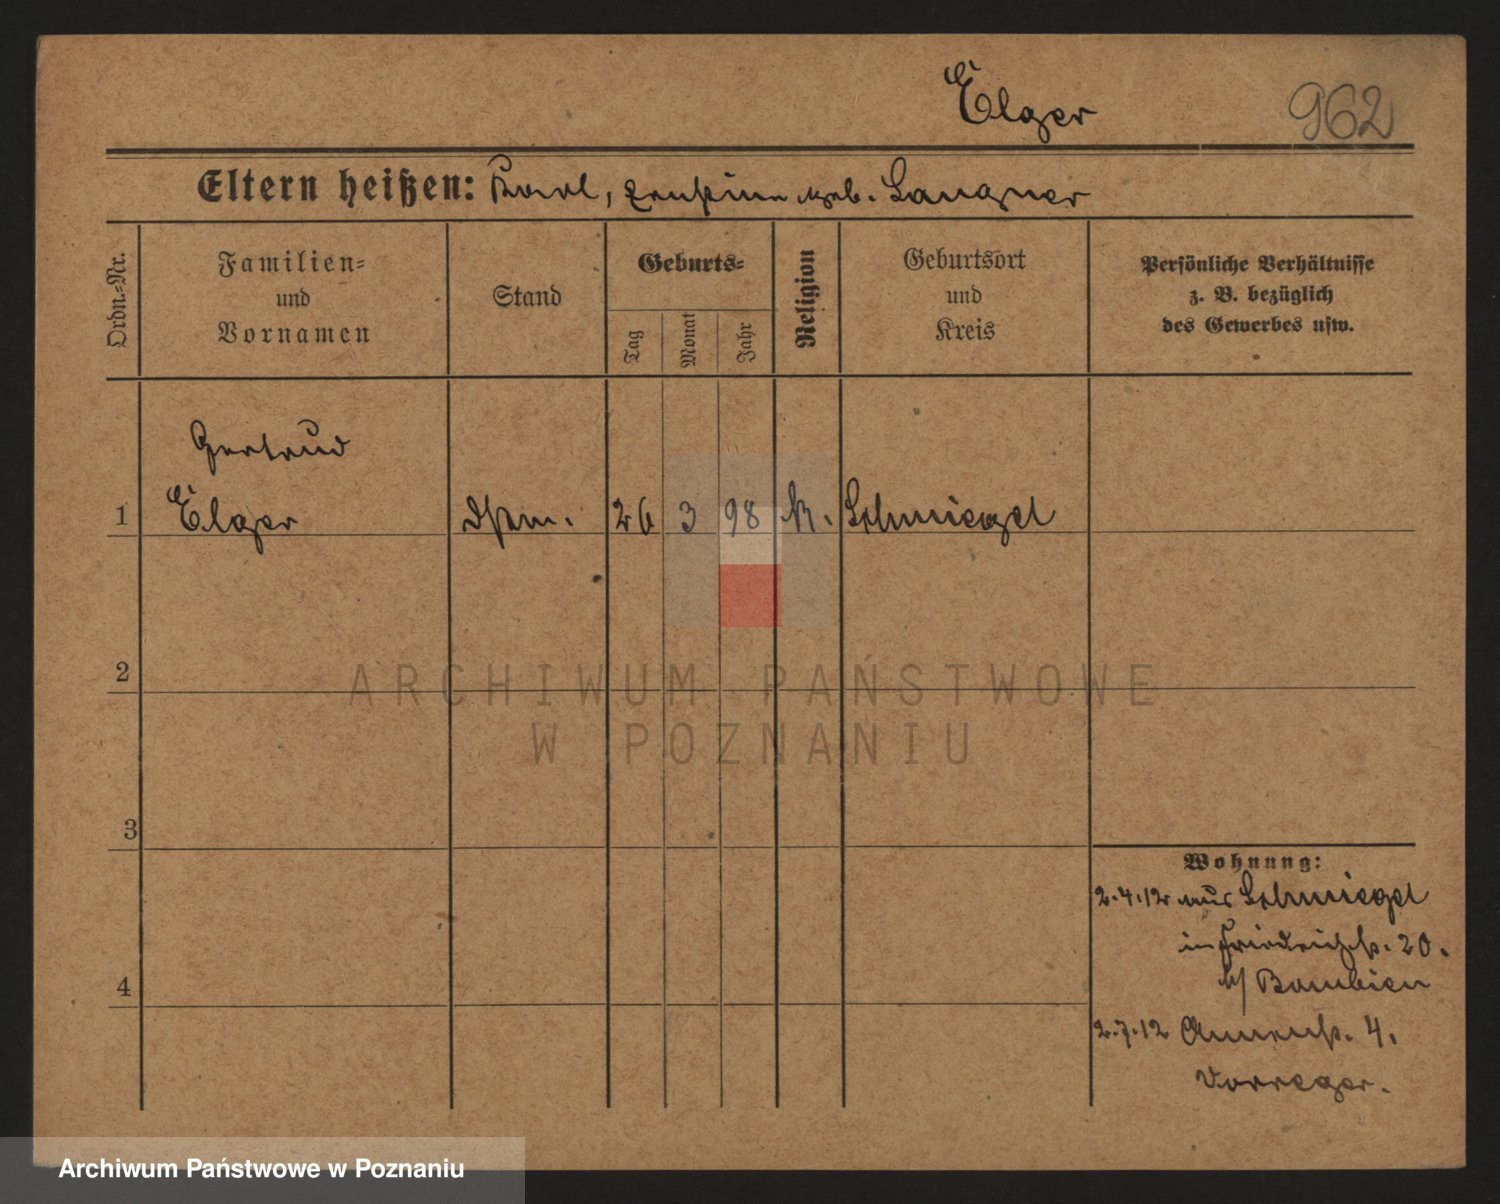 Elger 962
Eltern heißen: Karl, Ernstine geb. Langner
Ordn.-Nr.
Familien-
und
Vornamen
Stand
Geburts-
Tag
Monat
Jahr
Religion
Geburtsort
und
Kreis
Persönliche Verhältnisse
z. B. bezüglich
des Gewerbes usw.
Gertrud
1 Elger 26 3 98 K. Schmiegel
2
ARCHIWUM PAŃSTWOWE
W POZNANIU
3
Wohnung:
2.4.12 aus Schmiegel
in Friedrichstr. 20.
b/
4
2.7.12 4.
Archiwum Państwowe w Poznaniu